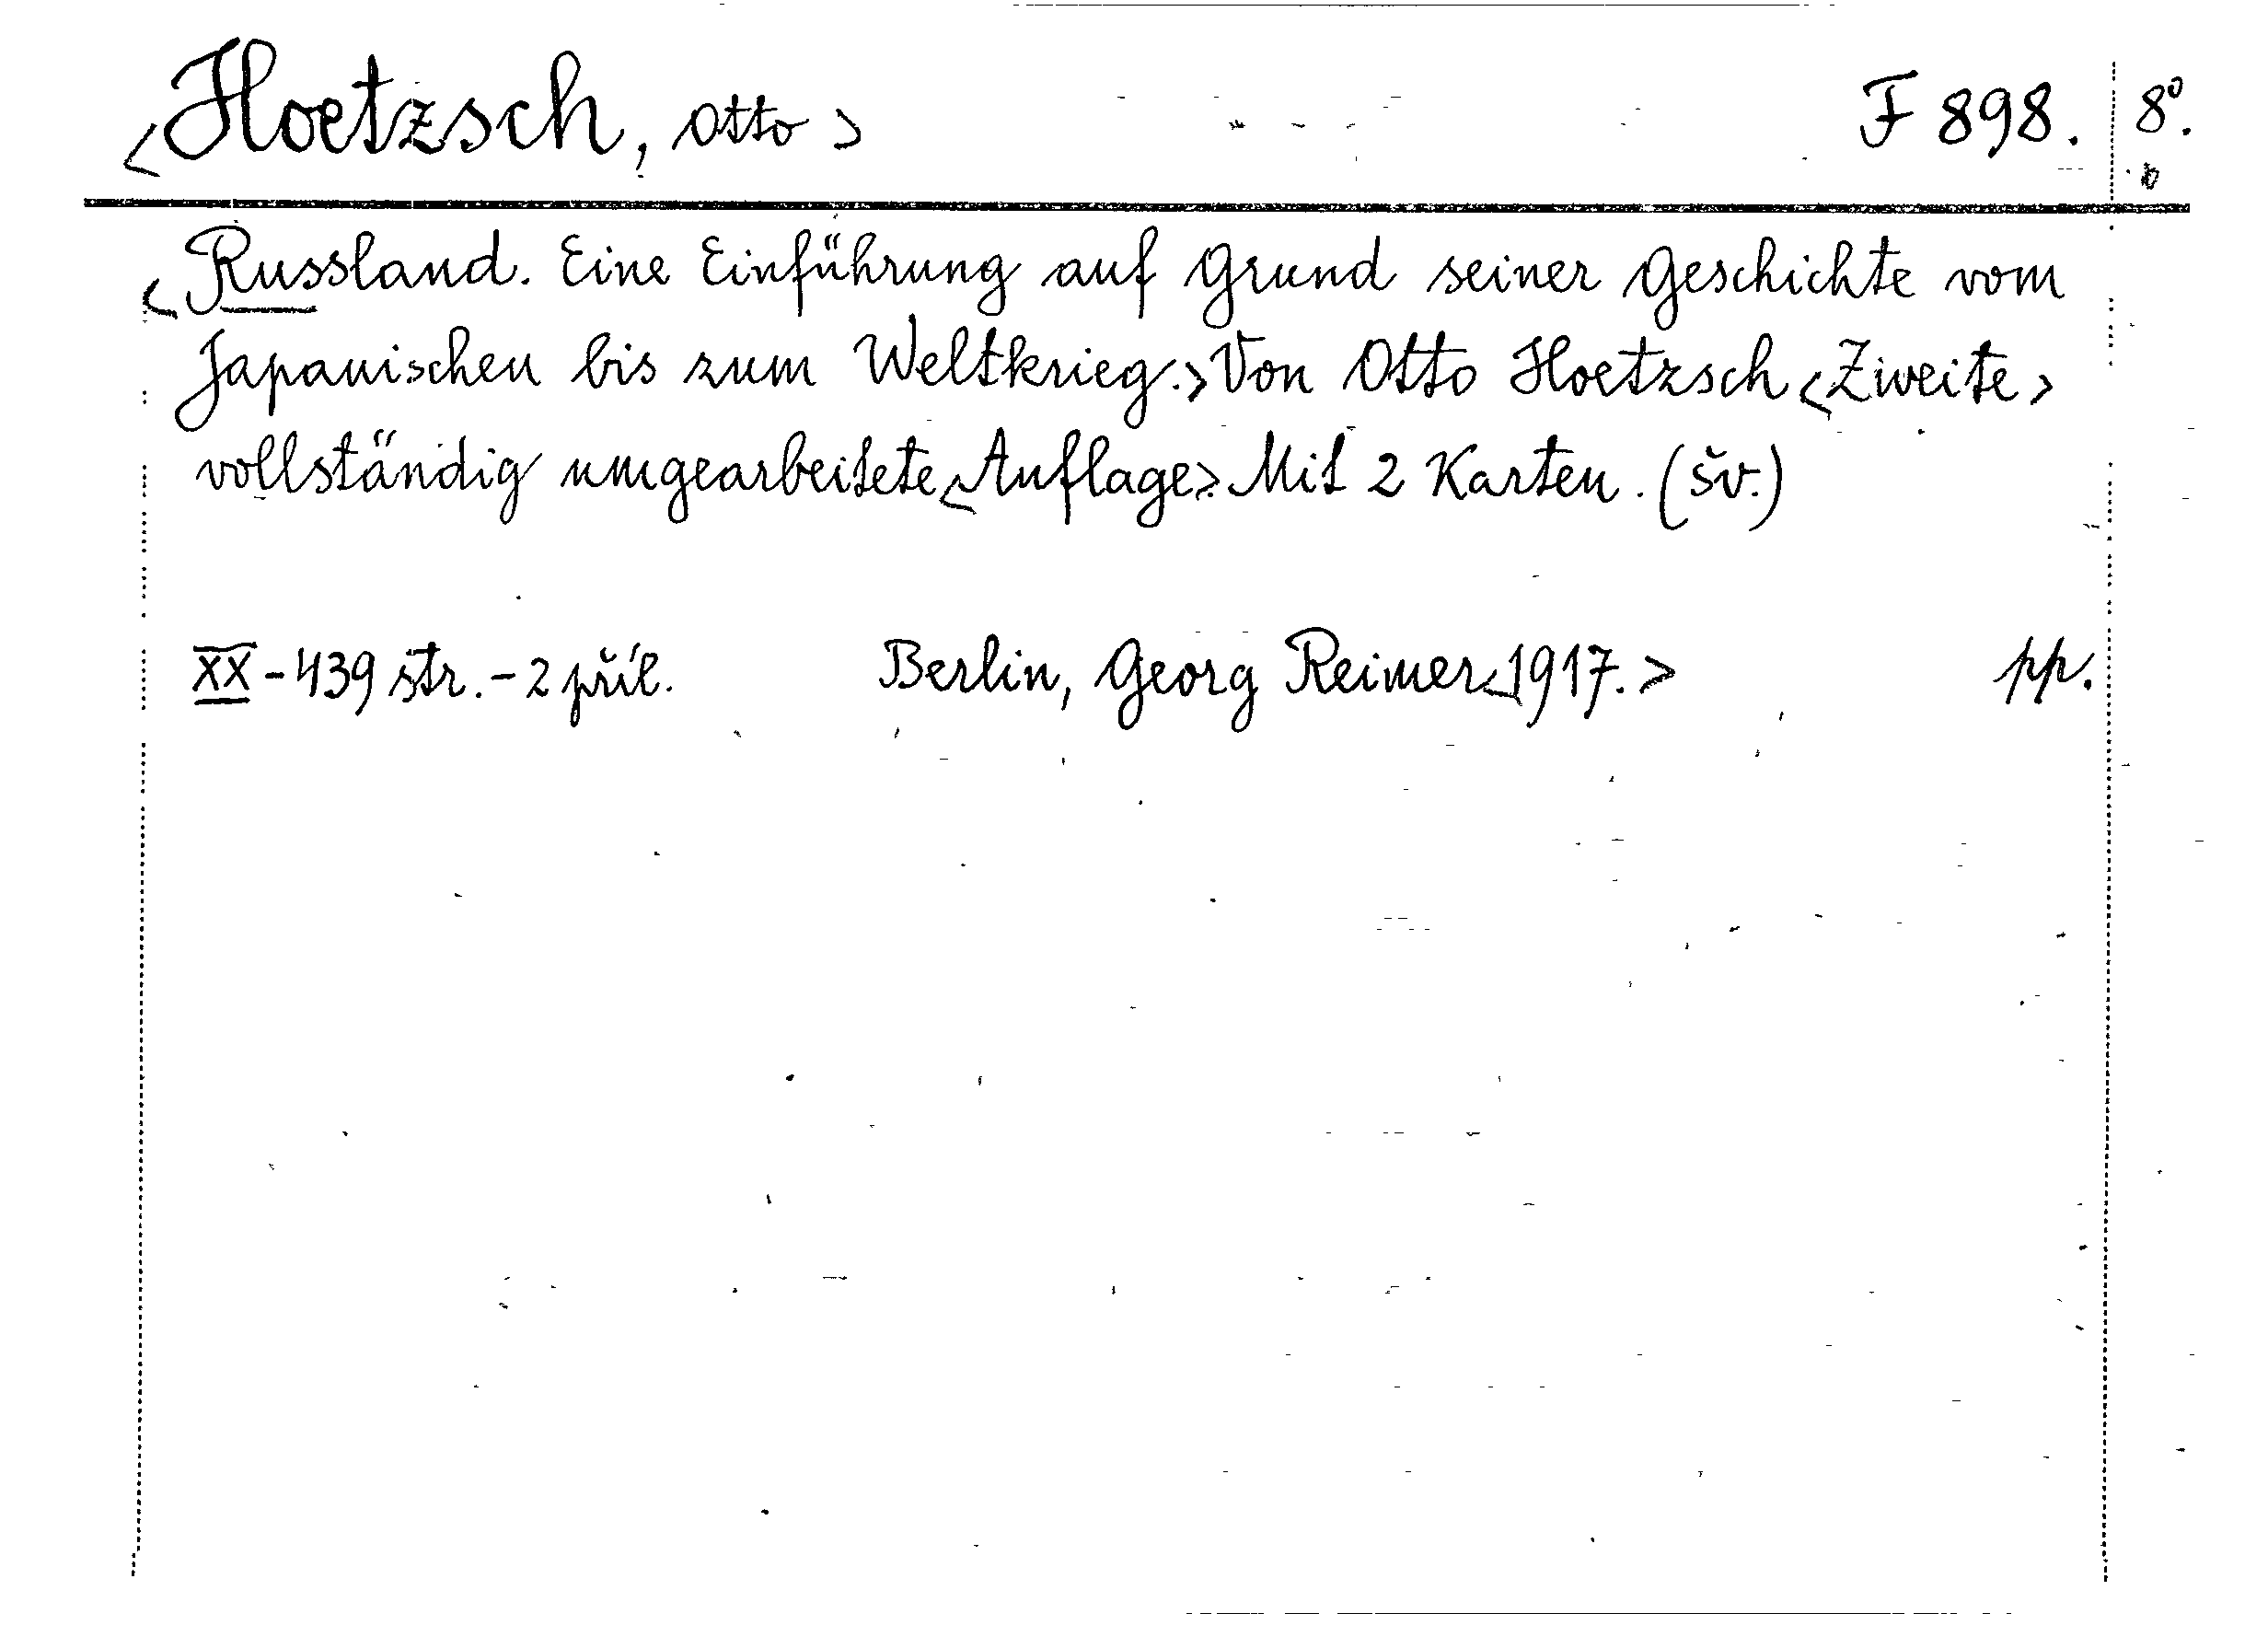 <Hoetzsch, Otto> F 898. 8°.
<Russland. Eine Einführung auf Grund seiner Geschichte vom
Japanischen bis zum Weltkrieg.> Von Otto Hoetzsch <Zweite>
vollständig umgearbeitete <Auflage>. Mit 2 Karten. (šv.)
XX - 439 str. - 2 příl. Berlin, Georg Reimer <1917.> pp.